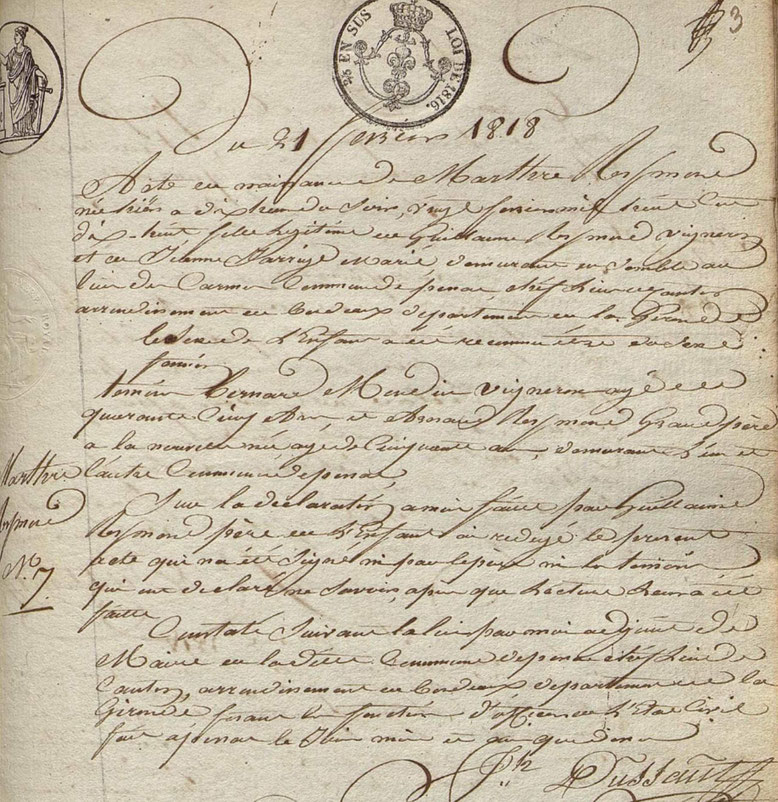 3
25 EN SUS LOI DE 1816.
Du 21 fevrier 1818
Acte de naissance de Marthre
née hiér a dix heure du Soir, vingt fevrier mil huit Cent
dix-huit fille legitime de Guillaume vigneron
et de Jeanne Marié demurant en semble au
lieu de Carmen Commune de chef lieu de Canton
arrondissement de Bordeaux departement de la Gironde
le Sexe de l'Enfant a été reconnu être
feminin
temoin Bernard vigneron agé de
quarante Cinq Ans et Arnaud Grand père
a la nouvelle née, agé de Cinquante an, demurant l'un et
l'autre Commune de
Sur la declaration a moi faite par Guillaume
père de l'Enfant ai redigé le present
acte qui na été Signé ni par le père ni les temoin
qui ont declaré ne Savoir, apres que lecture leur a été
faitte
Marthre
N.° 7
Constaté Suivant la loi par moi adjoint de
Maire de la ditte Commune de chef lieu de
Canton, arrondissement de Bordeaux departement de la
Gironde fesant les fonction d'officier de l'Etat Civil
fait a le Jour mois et an que dessus
Dussaut